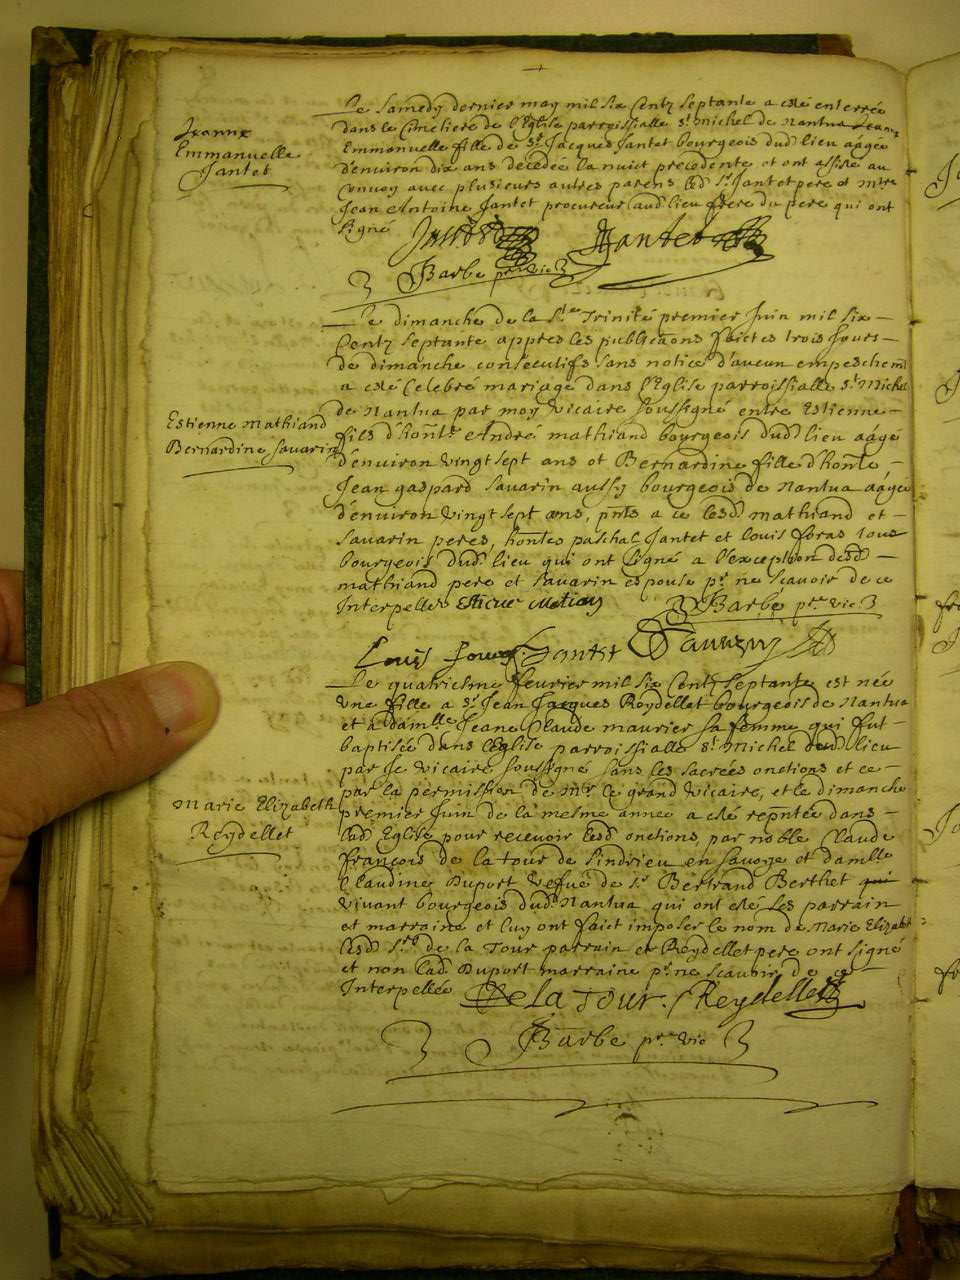 Jeanne
Emmanuelle
Jantet
Le samedy dernier may mil six centz septante a esté enterrée
dans le cimetiere de l'Eglise parroissialle st Michel de Nantua Jeanne
Emmanuelle fille de Sr Jacques Jantet bourgeois dud lieu aagée
d'environ dix ans decedée la nuit precedente et ont assisté au
convoy avec plusieurs autres parens led sr Jantet pere et Mtre
Jean Antoine Jantet procureur aud lieu frere du pere qui ont
signé
Jantet
Barbe ptre vic
Estienne Mathiand
Bernardine Savarin
Le dimanche de la Ste Trinité premier Juin mil six
centz septante appres les publicaons faictes trois jours
de dimanche consecutifs sans notice d'aucun empeschemt
a esté celebré mariage dans l'Eglise parroissialle st Michel
de Nantua par moy vicaire soussigné entre Estienne
fils d'honble André Mathiand bourgeois dud lieu aagé
d'environ vingt sept ans et Bernardine fille d'honble
Jean Gaspard Savarin aussy bourgeois de Nantua aagée
d'environ vingt sept ans, pnts a ce lesd Mathiand et
Savarin peres, hontes Paschal Jantet et Louis Foras tous
bourgeois dud lieu qui ont signé a l'exception desd
Mathiand pere et Savarin espouse pr ne scavoir de ce
Interpellés
Barbe ptre vic
Louis Jantet Savarin
Marie Elizabeth
Reydellet
Le quatriesme fevrier mil six centz septante est née
une fille a sr Jean Jacques Reydellet bourgeois de Nantua
et a damlle Jeane Claude Maurier sa femme qui fut
baptisée dans l'Eglise parroissialle st Michel dud lieu
par le vicaire soussigné sans les sacrées onctions et ce
par la permission de Mr le grand vicaire, et le dimanche
premier Juin de la mesme annee a esté repntée dans
lad Eglise pour recevoir lesd onctions, par noble Claude
François de la Tour de Sindrieu en Savoye et damlle
Claudine Duport vefue de sr Bertrand Berthet qui
vivant bourgeois dud Nantua qui ont esté ses parrain
et marraine et luy ont faict imposer le nom de Marie Elizabet
lesd srs de la Tour parrain et Reydellet pere ont signé
et non lad Duport marraine pr ne scavoir de ce
Interpellée
De la Tour. Reydellet
Barbe ptre vic